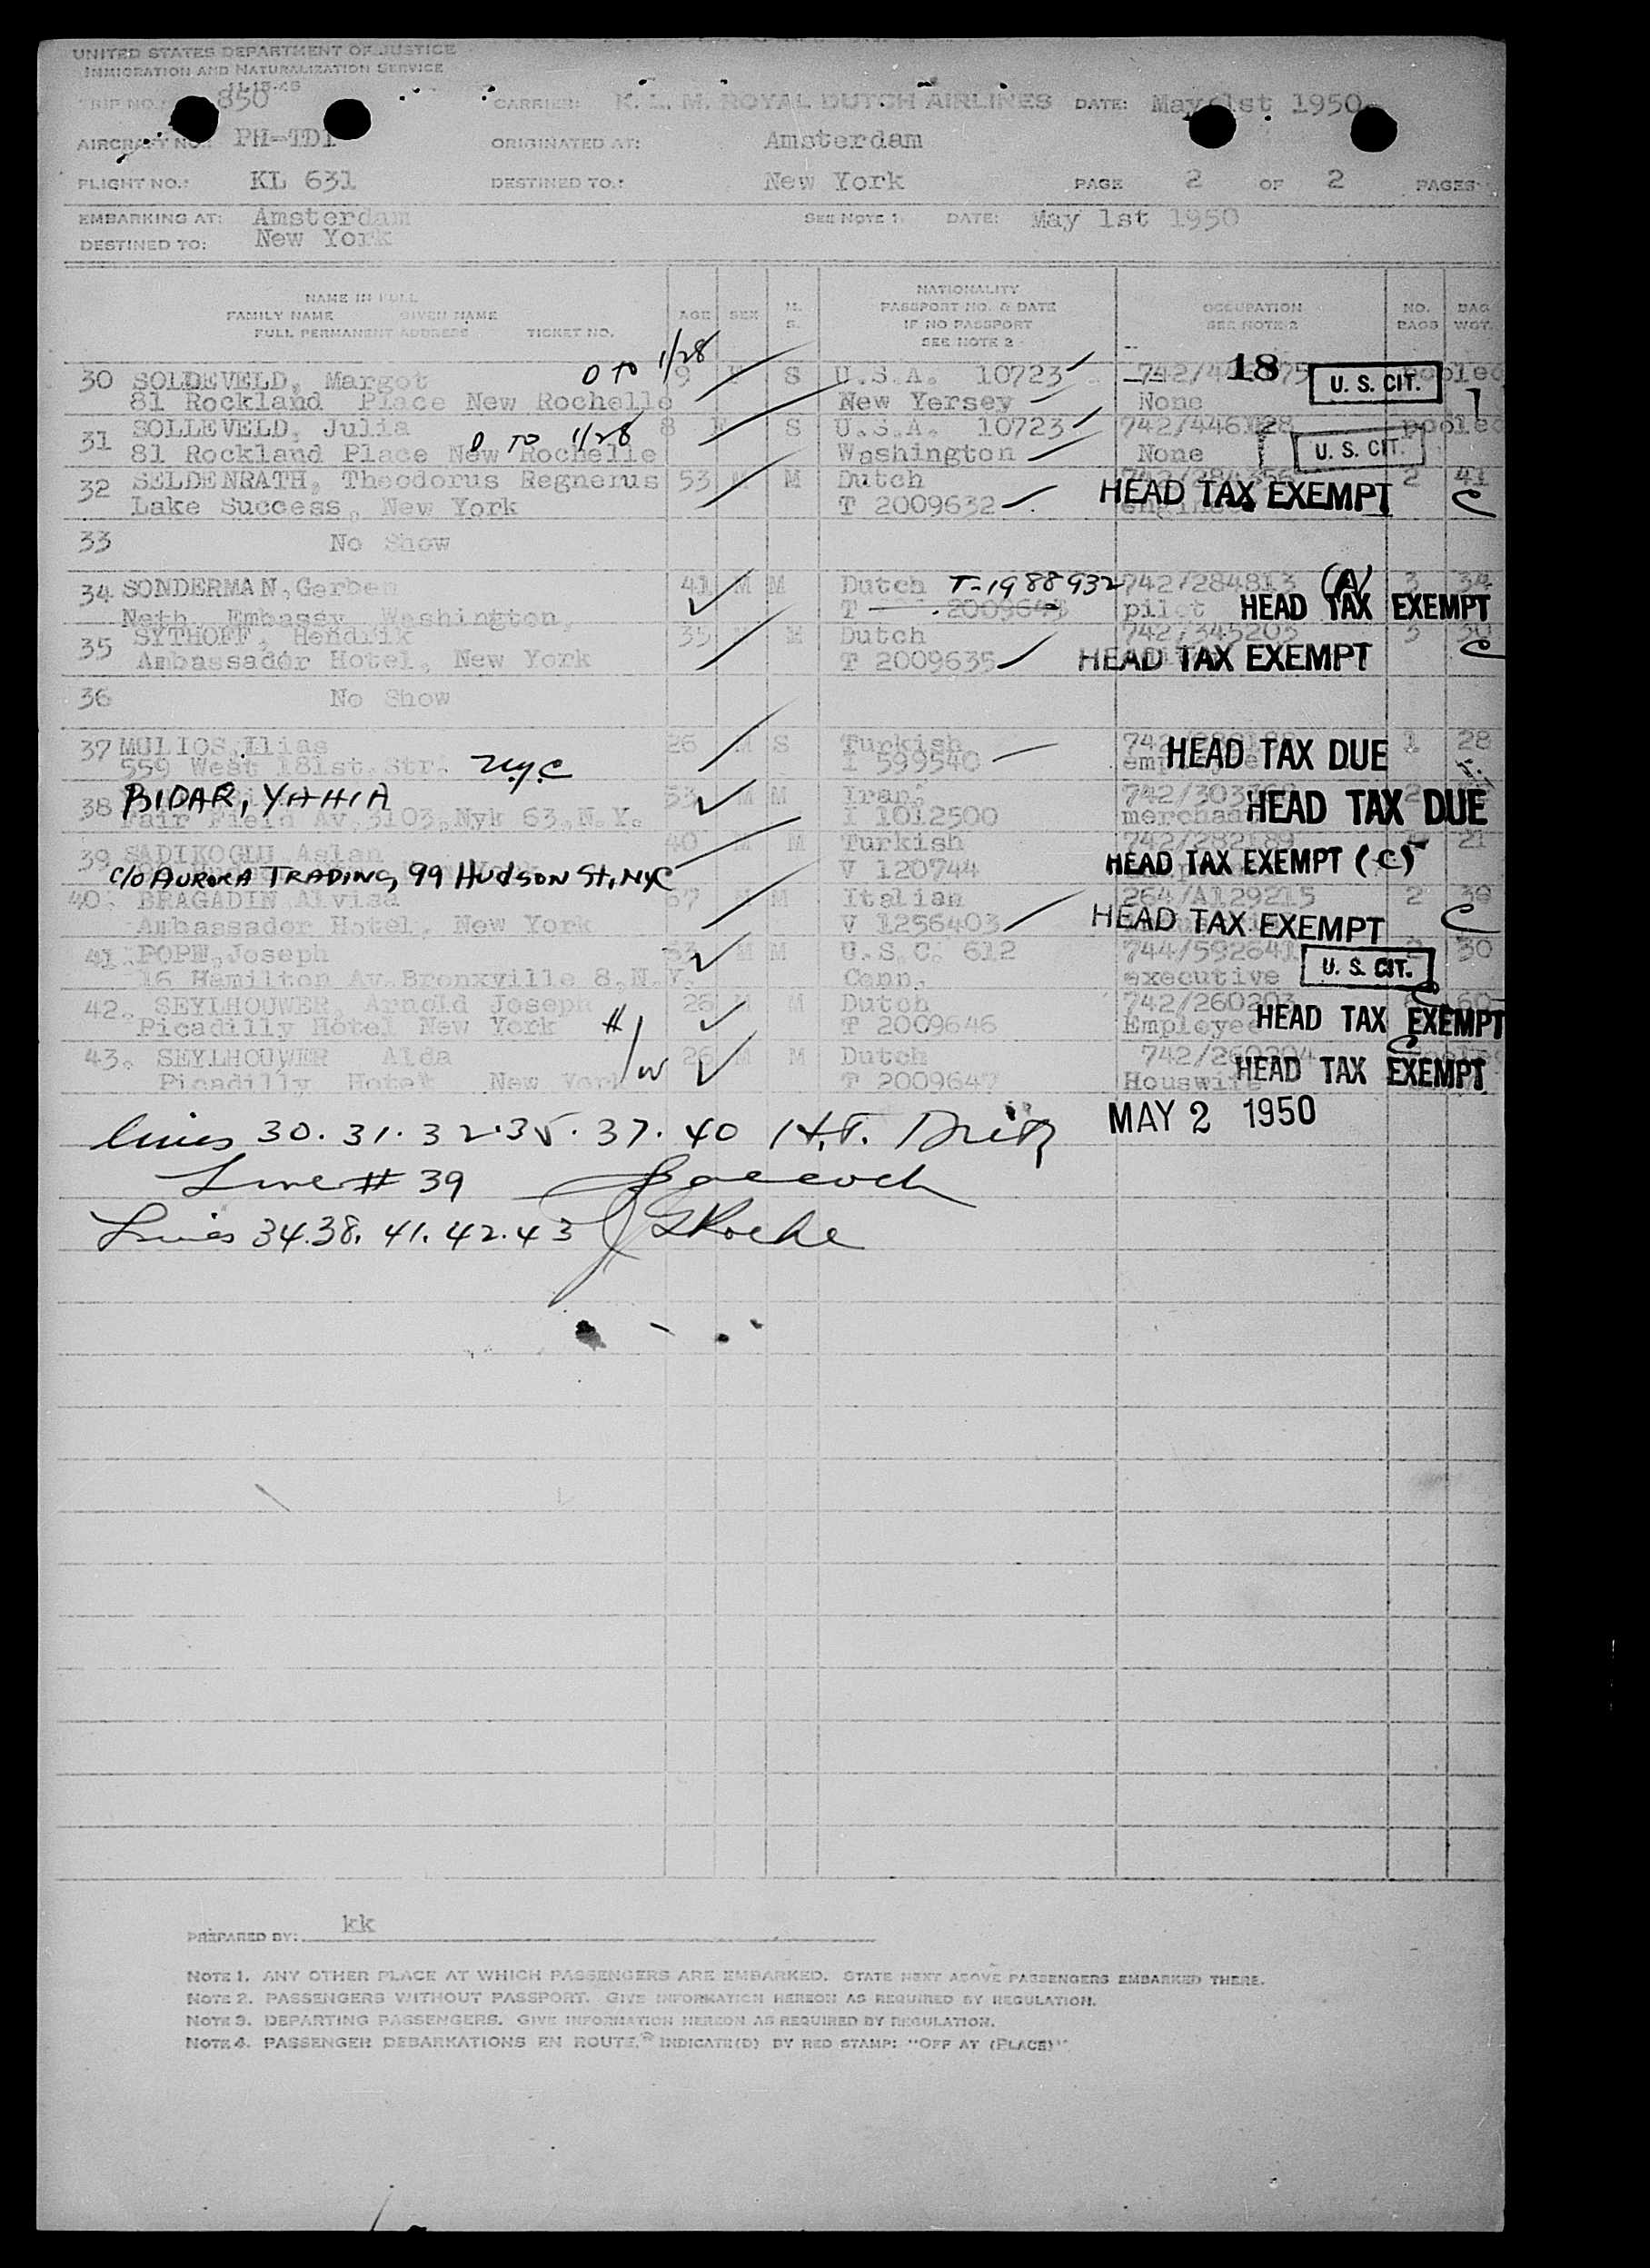 UNITED STATES DEPARTMENT OF JUSTICE
IMMIGRATION AND NATURALIZATION SERVICE
11-15-49
TRIP NO.: 850 CARRIER: K. L. M. ROYAL DUTCH AIRLINES DATE: May 1st 1950
AIRCRAFT NO.: PH-TDI ORIGINATED AT: Amsterdam
FLIGHT NO.: KL 631 DESTINED TO: New York PAGE 2 OF 2 PAGES
EMBARKING AT: Amsterdam SEE NOTE 1. DATE: May 1st 1950
DESTINED TO: New York
NAME IN FULL
FAMILY NAME GIVEN NAME
FULL PERMANENT ADDRESS TICKET NO.
AGE SEX M. S.
NATIONALITY
PASSPORT NO. & DATE
IF NO PASSPORT
SEE NOTE 2
OCCUPATION
SEE NOTE 2
NO. BAGS BAG WGT.
30 SOLDEVELD, Margot D TO 1/28 9 F S U.S.A. 10723 18 U. S. CIT. pooled
81 Rockland Place New Rochelle New Yersey None
31 SOLLEVELD, Julia 8 S U.S.A. 10723 742/446128 pooled
81 Rockland Place New Rochelle D TO 1/28 Washington None U. S. CIT.
32 SELDENRATH, Theodorus Regnerus 53 M M Dutch 742/284356 2 41
Lake Success, New York T 2009632 HEAD TAX EXEMPT C
33 No Show
34 SONDERMAN, Gerben 41 M M Dutch T-1988932 742/284813 (A) 3 34
Neth. Embassy Washington, T 2009643 pilot HEAD TAX EXEMPT
35 SYTHOFF, Hendrik 35 M M Dutch 742/345203 3 30
Ambassador Hotel, New York T 2009635 HEAD TAX EXEMPT C
36 No Show
37 MOLIOS, Ilias 26 M S Turkish HEAD TAX DUE 1 28
559 West 181st. Str. N.Y.C I 599540
38 BIDAR, YAHIA 53 M M Iran. 742/303 HEAD TAX DUE 2
Fair Field Av. 3103, Nyk 63, N.Y. I 1012500 merchan
39 SADIKOGLU Aslan 40 M M Turkish 742/282189 21
C/O AURORA TRADING, 99 HUDSON St, NYC V 120744 HEAD TAX EXEMPT (C)
40. BRAGADIN Alvise 67 M M Italian 264/A129215 2 39
Ambassador Hotel, New York V 1256403 HEAD TAX EXEMPT C
41. POPE, Joseph 53 M M U.S.C. 612 744/592641 2 30
16 Hamilton Av. Bronxville 8, N.Y. Conn. executive U. S. CIT.
42. SEYLHOUWER, Arnold Joseph 26 M M Dutch 742/260203 60
Picadilly Hotel New York # T 2009646 Employee HEAD TAX EXEMPT C
43. SEYLHOUWER Alda 26 M M Dutch 742/260204
Picadilly Hotel New York T 2009647 Houswife HEAD TAX EXEMPT C
MAY 2 1950
lines 30. 31. 32. 35. 37. 40 H.T.
Line # 39
Lines 34. 38. 41. 42. 43
PREPARED BY: kk
NOTE 1. ANY OTHER PLACE AT WHICH PASSENGERS ARE EMBARKED. STATE NEXT ABOVE PASSENGERS EMBARKED THERE.
NOTE 2. PASSENGERS WITHOUT PASSPORT. GIVE INFORMATION HEREON AS REQUIRED BY REGULATION.
NOTE 3. DEPARTING PASSENGERS. GIVE INFORMATION HEREON AS REQUIRED BY REGULATION.
NOTE 4. PASSENGER DEBARKATIONS EN ROUTE, INDICATE(D) BY RED STAMP: "OFF AT (PLACE)"